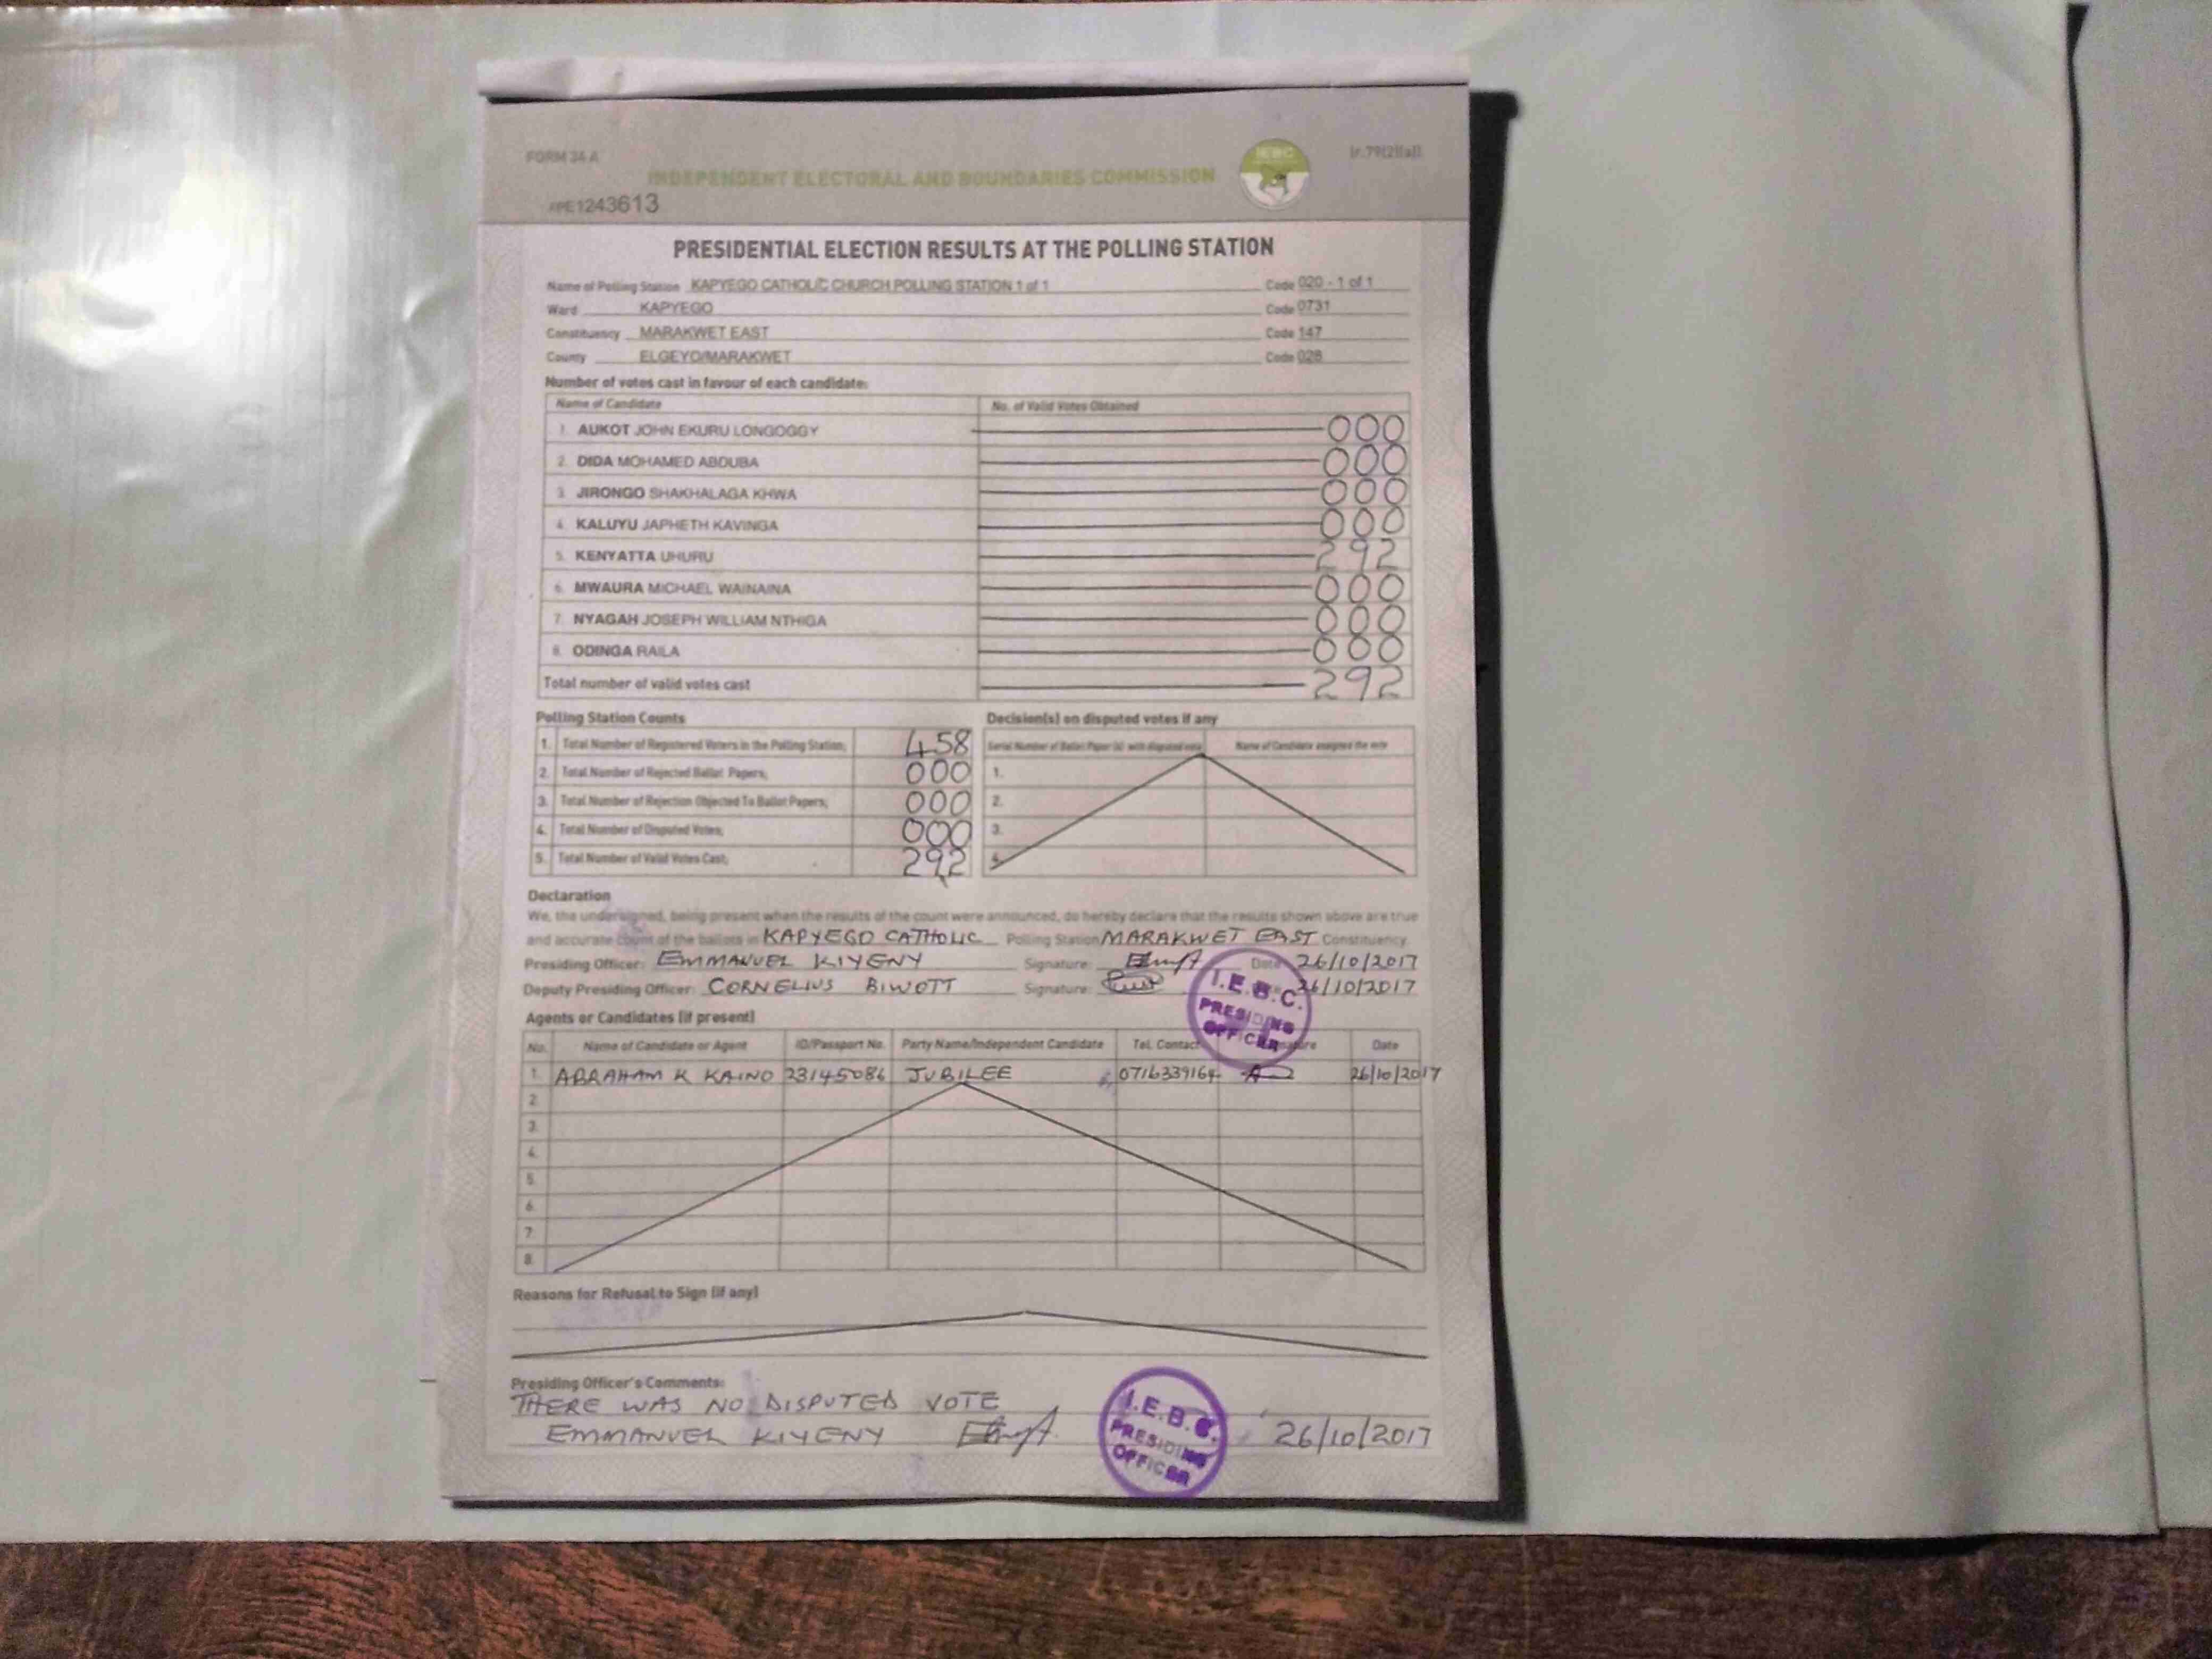 FORM 34 A
(r.79(2)(a))
INDEPENDENT ELECTORAL AND BOUNDARIES COMMISSION
IEBC
#PE1243613
PRESIDENTIAL ELECTION RESULTS AT THE POLLING STATION
Name of Polling Station KAPYEGO CATHOLIC CHURCH POLLING STATION 1 of 1 Code 020 - 1 of 1
Ward KAPYEGO Code 0731
Constituency MARAKWET EAST Code 147
County ELGEYO/MARAKWET Code 028
Number of votes cast in favour of each candidate:
Name of Candidate No. of Valid Votes Obtained
1. AUKOT JOHN EKURU LONGOGGY 000
2. DIDA MOHAMED ABDUBA 000
3. JIRONGO SHAKHALAGA KHWA 000
4. KALUYU JAPHETH KAVINGA 000
5. KENYATTA UHURU 292
6. MWAURA MICHAEL WAINAINA 000
7. NYAGAH JOSEPH WILLIAM NTHIGA 000
8. ODINGA RAILA 000
Total number of valid votes cast 292
Polling Station Counts
1. Total Number of Registered Voters in the Polling Station; 458
2. Total Number of Rejected Ballot Papers; 000
3. Total Number of Rejection Objected To Ballot Papers; 000
4. Total Number of Disputed Votes; 000
5. Total Number of Valid Votes Cast; 292
Decision(s) on disputed votes if any
Serial Number of Ballot Paper (s) with disputed vote Name of Candidate assigned the vote
1.
2.
3.
4.
Declaration
We, the undersigned, being present when the results of the count were announced, do hereby declare that the results shown above are true
and accurate count of the ballots in KAPYEGO CATHOLIC Polling Station MARAKWET EAST Constituency.
Presiding Officer: EMMANUEL KIYENY Signature: Date 26/10/2017
Deputy Presiding Officer: CORNELIUS BIWOTT Signature: 26/10/2017
I.E.B.C.
PRESIDING
OFFICER
Agents or Candidates (if present)
No. Name of Candidate or Agent ID/Passport No. Party Name/Independent Candidate Tel. Contact Signature Date
1. ABRAHAM K KAINO 23145086 JUBILEE 0716339164 26/10/2017
2.
3.
4.
5.
6.
7.
8.
Reasons for Refusal to Sign (if any)
Presiding Officer's Comments:
THERE WAS NO DISPUTED VOTE
EMMANUEL KIYENY 26/10/2017
I.E.B.C.
PRESIDING
OFFICER